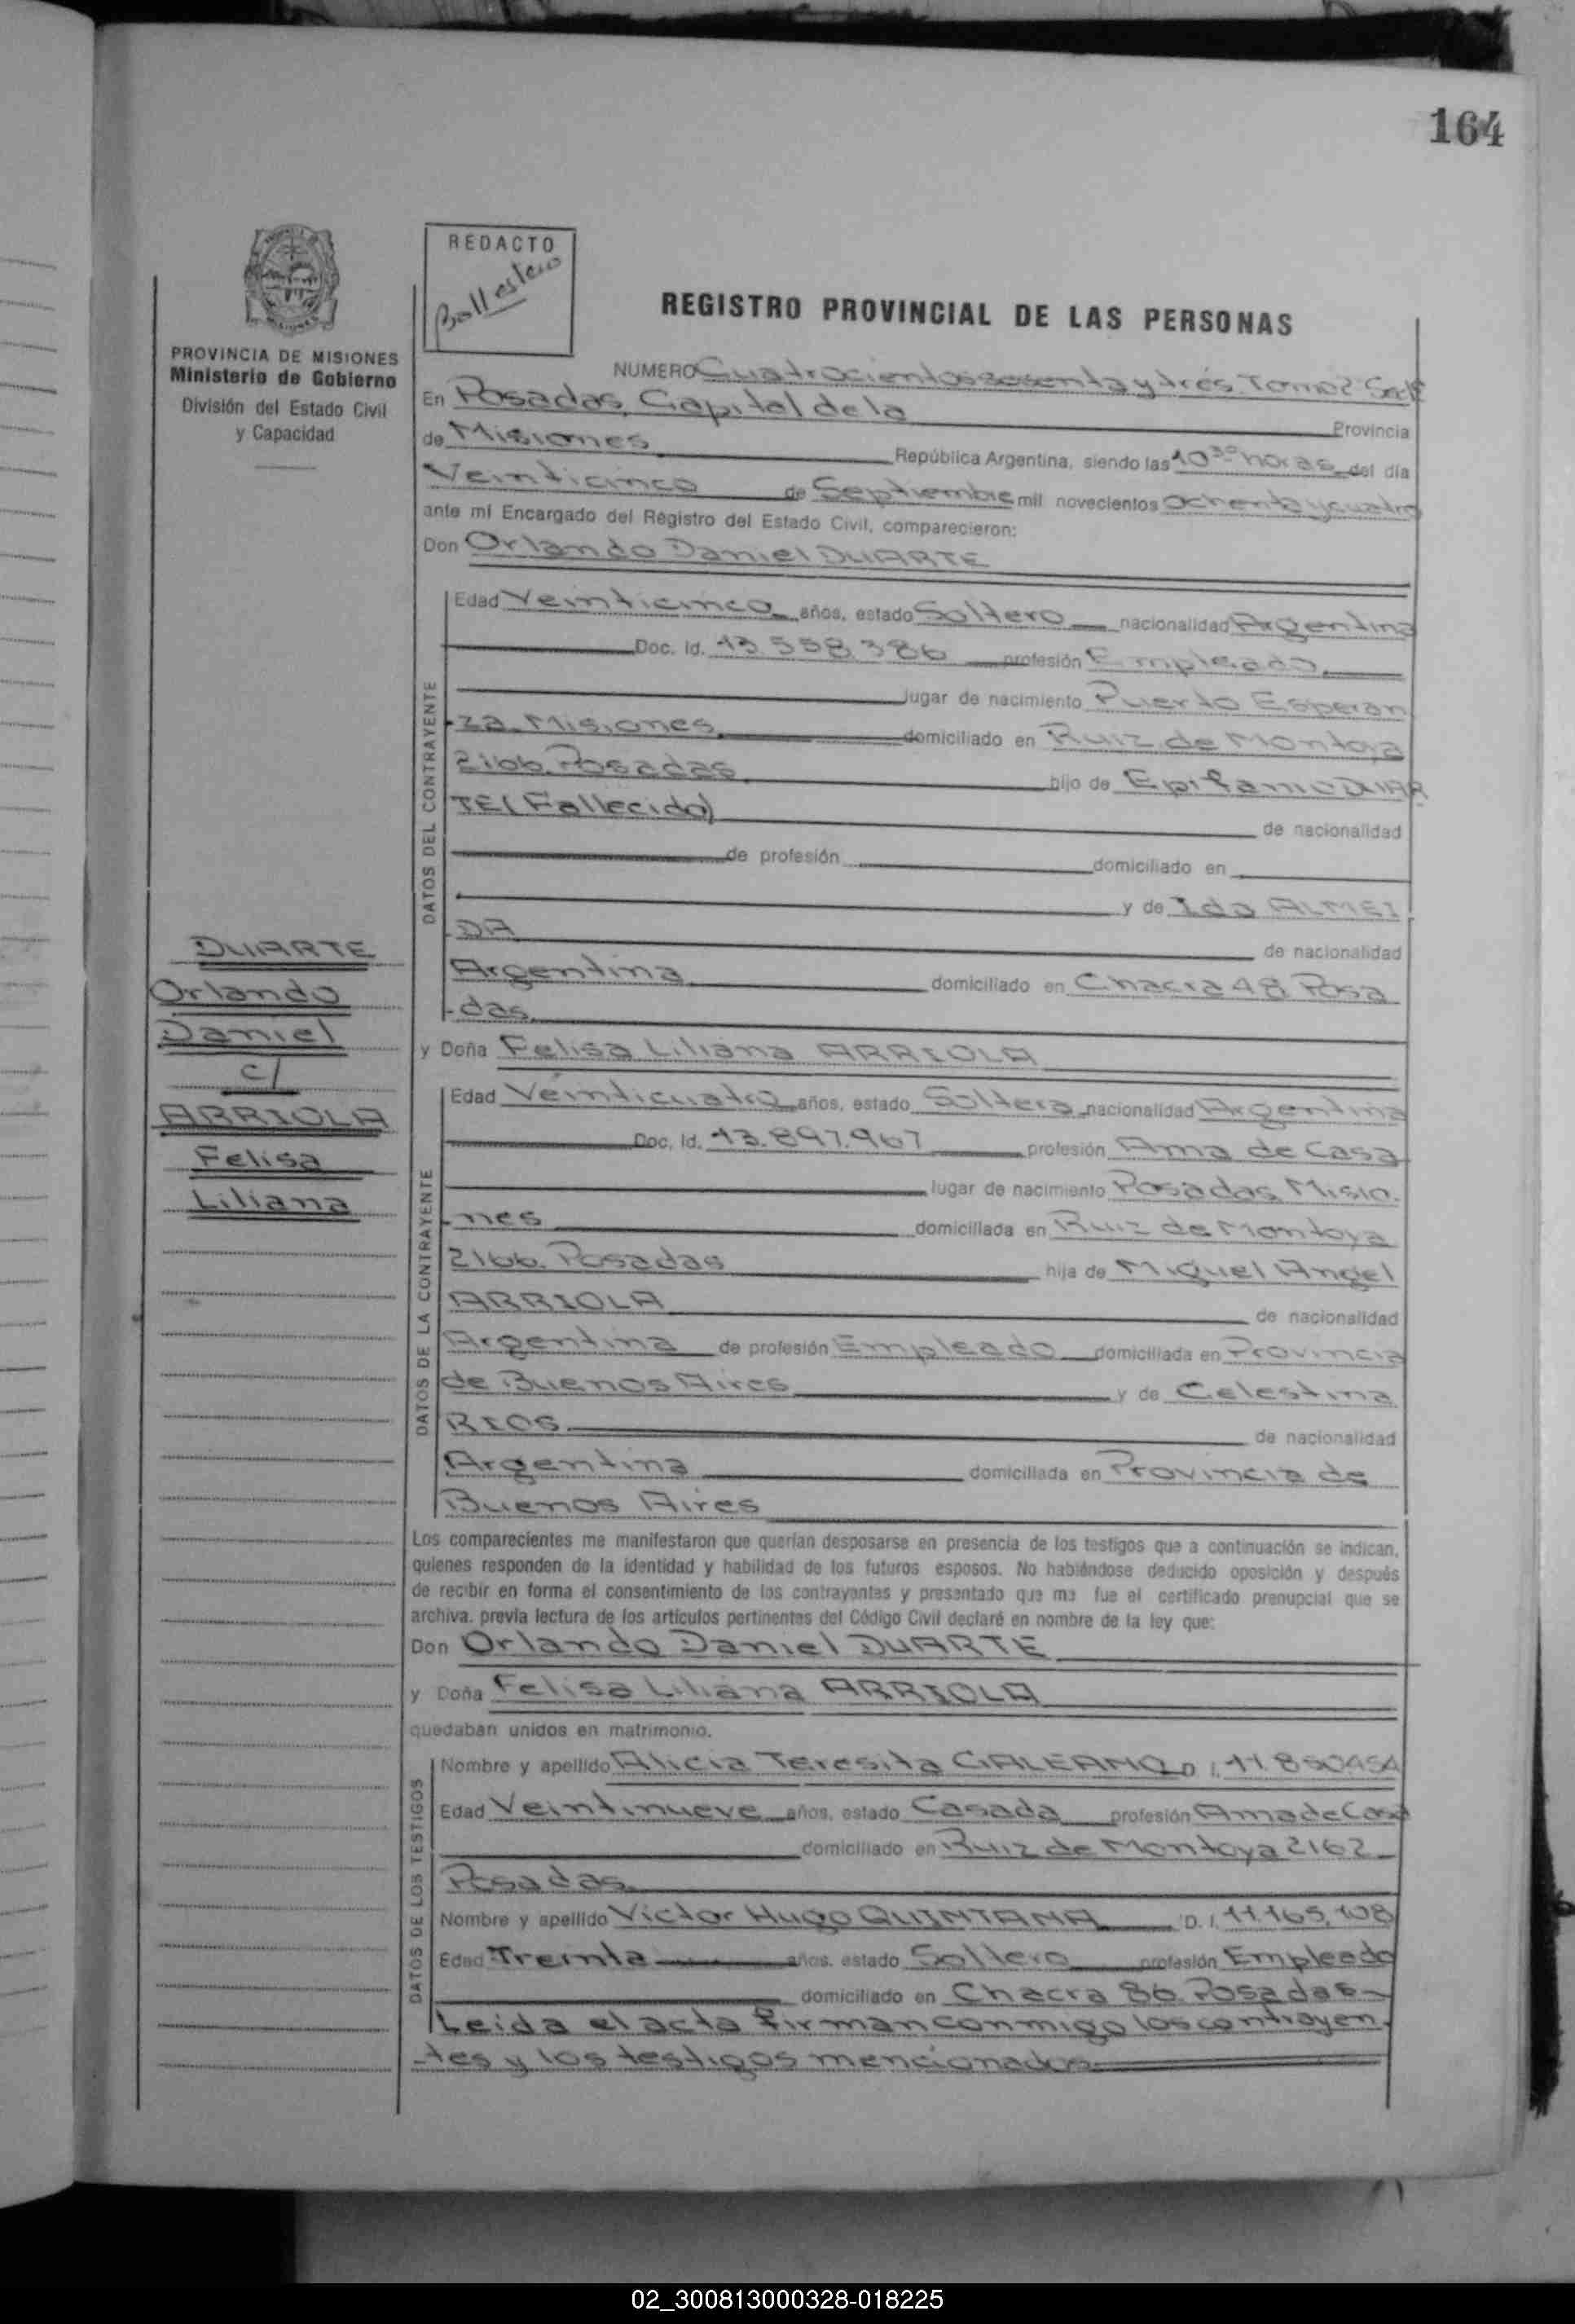 164
REDACTO
Ballestero
REGISTRO PROVINCIAL DE LAS PERSONAS
PROVINCIA DE MISIONES
Ministerio de Gobierno
División del Estado Civil
y Capacidad
NUMERO Cuatrocientos sesenta y trés. Tomo 2º
En Posadas, Capital de la Provincia
de Misiones República Argentina, siendo las 10 30 horas del día
Veinticinco de Septiembre mil novecientos ochenta y cuatro
ante mí Encargado del Registro del Estado Civil, comparecieron:
Don Orlando Daniel DUARTE
DATOS DEL CONTRAYENTE
Edad Veinticinco años, estado Soltero nacionalidad Argentina
Doc. Id. 13.558.386 profesión Empleado
lugar de nacimiento Puerto Esperan
za Misiones domiciliado en Ruiz de Montoya
2166. Posadas hijo de Epifanio DUAR
TE (Fallecido) de nacionalidad
de profesión domiciliado en
y de Ida ALMEI
DA de nacionalidad
Argentina domiciliado en Chacra 48 Posa
-das
y Doña Felisa Liliana ARRIOLA
DUARTE
Orlando
Daniel
c/
ARRIOLA
Felisa
Liliana
DATOS DE LA CONTRAYENTE
Edad Veinticuatro años, estado Soltera nacionalidad Argentina
Doc. Id. 13.897.967 profesión Ama de Casa
lugar de nacimiento Posadas Misio-
-nes domiciliada en Ruiz de Montoya
2166. Posadas hija de Miguel Angel
ARRIOLA de nacionalidad
Argentina de profesión Empleado domiciliada en Provincia
de Buenos Aires y de Celestina
RIOS de nacionalidad
Argentina domiciliada en Provincia de
Buenos Aires
Los comparecientes me manifestaron que querían desposarse en presencia de los testigos que a continuación se indican,
quienes responden de la identidad y habilidad de los futuros esposos. No habiéndose deducido oposición y después
de recibir en forma el consentimiento de los contrayentes y presentado que me fue el certificado prenupcial que se
archiva. previa lectura de los artículos pertinentes del Código Civil declaré en nombre de la ley que:
Don Orlando Daniel DUARTE
y Doña Felisa Liliana ARRIOLA
quedaban unidos en matrimonio.
DATOS DE LOS TESTIGOS
Nombre y apellido Alicia Teresita GALEANO D. I. 11.850454
Edad Veintinueve años, estado Casada profesión Ama de Casa
domiciliado en Ruiz de Montoya 2162
Posadas
Nombre y apellido Victor Hugo QUINTANA D. I. 11.165.108
Edad Treinta años, estado Soltero profesión Empleado
domiciliado en Chacra 86. Posadas-
Leida el acta firman conmigo los contrayen-
-tes y los testigos mencionados
02_300813000328-018225